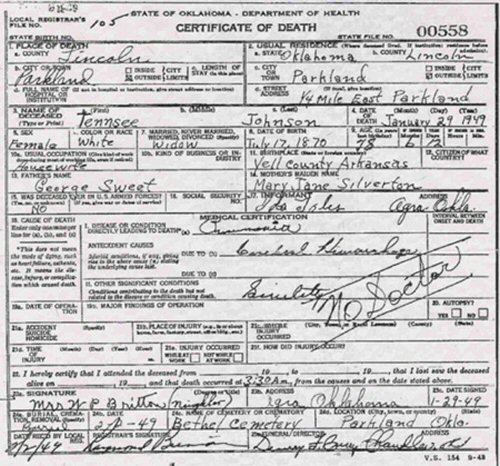 LOCAL REGISTRAR'S FILE NO. 105
STATE OF OKLAHOMA - DEPARTMENT OF HEALTH
CERTIFICATE OF DEATH
STATE BIRTH NO.
STATE FILE NO. 00558
1. PLACE OF DEATH
a. COUNTY Lincoln
2. USUAL RESIDENCE (Where deceased lived. If institution: residence before admission).
a. STATE Oklahoma b. COUNTY Lincoln
b. CITY OR TOWN Parkland INSIDE CITY OUTSIDE LIMITS c. LENGTH OF STAY (in this place)
c. CITY OR TOWN Parkland INSIDE CITY OUTSIDE LIMITS
d. FULL NAME OF HOSPITAL OR INSTITUTION (If not in hospital or institution, give street address or location)
d. STREET ADDRESS (If rural, give location) 1/4 Mile East Parkland
3. NAME OF DECEASED (Type or Print) a. (First) Tennsee b. (Middle) c. (Last) Johnson
4. DATE OF DEATH (Month) (Day) (Year) January 29 1949
5. SEX Female
6. COLOR OR RACE White
7. MARRIED, NEVER MARRIED, WIDOWED, DIVORCED (Specify) Widow
8. DATE OF BIRTH July 17, 1870
9. AGE 78 6 12
10a. USUAL OCCUPATION Housewife
10b. KIND OF BUSINESS OR INDUSTRY
11. BIRTHPLACE Yell County Arkansas
12. CITIZEN OF WHAT COUNTRY?
13. FATHER'S NAME George Sweet
14. MOTHER'S MAIDEN NAME Mary Jane Silverton
15. WAS DECEASED EVER IN U.S. ARMED FORCES? NO
16. SOCIAL SECURITY NO.
17. INFORMANT ADDRESS Agra Okla.
18. CAUSE OF DEATH
Enter only one cause per line for (a), (b), and (c)
MEDICAL CERTIFICATION
INTERVAL BETWEEN ONSET AND DEATH
I. DISEASE OR CONDITION DIRECTLY LEADING TO DEATH (a)
*This does not mean the mode of dying, such as heart failure, asthenia, etc. It means the disease, injury, or complication which caused death.
ANTECEDENT CAUSES
Morbid conditions, if any, giving rise to the above cause (a), stating the underlying cause last.
DUE TO (b) Cerebral Hemorrhage
DUE TO (c)
II. OTHER SIGNIFICANT CONDITIONS
Conditions contributing to the death but not related to the disease or condition causing death. Senility
NO Doctor
19a. DATE OF OPERATION
19b. MAJOR FINDINGS OF OPERATION
20. AUTOPSY? YES NO
21a. ACCIDENT SUICIDE HOMICIDE (Specify)
21b. PLACE OF INJURY
21c. WHERE INJURY OCCURRED
21d. TIME OF INJURY (Month) (Day) (Year) (Hour)
21e. INJURY OCCURRED WHILE AT WORK NOT WHILE AT WORK
21f. HOW DID INJURY OCCUR?
22. I hereby certify that I attended the deceased from 19 to 19 that I last saw the deceased
alive on 19 and that death occurred at 3:30A.m., from the causes and on the date stated above.
23a. SIGNATURE Mrs W P Britton
23b. ADDRESS Agra Oklahoma
23c. DATE SIGNED 1-29-49
24a. BURIAL, CREMATION, REMOVAL (Specify) Burial
24b. DATE
24c. NAME OF CEMETERY OR CREMATORY Bethel Cemetery
24d. LOCATION (City, town, or county) (State) Parkland Okla.
DATE REC'D BY LOCAL REG. 2/2/49
REGISTRAR'S SIGNATURE Raymond
25. FUNERAL DIRECTOR ADDRESS
V.S. 154 9-48